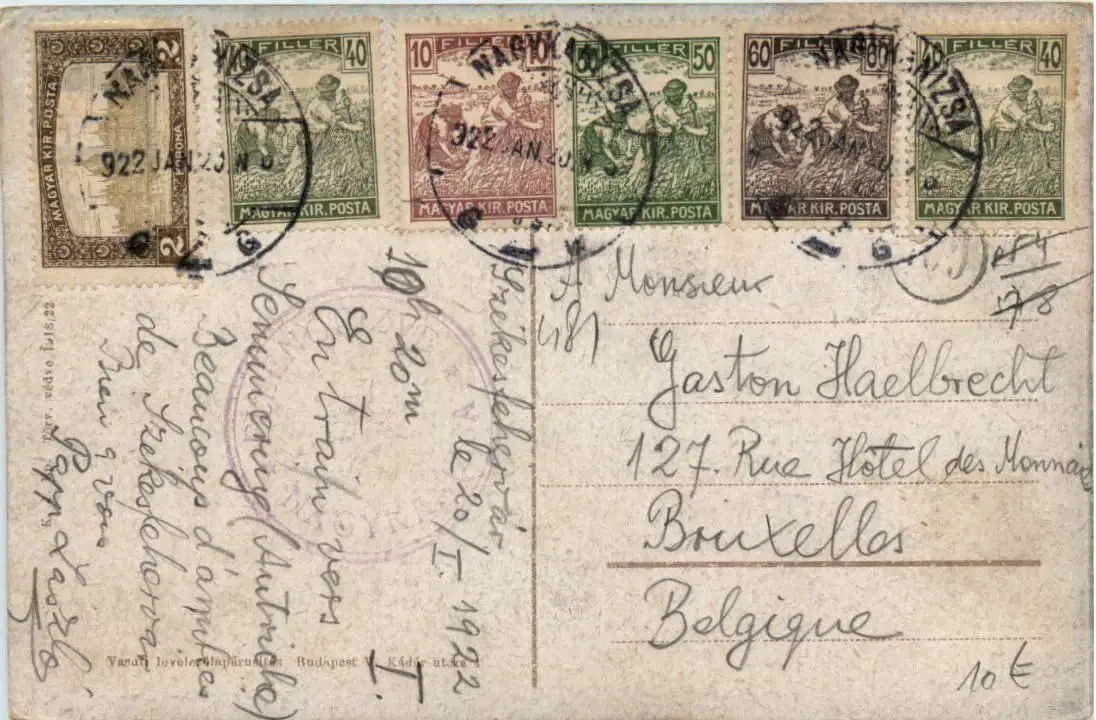 2 MAGYAR KIR. POSTA KORONA 2
FILLÉR 40 MAGYAR KIR. POSTA
10 FILLÉR 10 MAGYAR KIR. POSTA
50 FILLÉR 50 MAGYAR KIR. POSTA
60 FILLÉR 60 MAGYAR KIR. POSTA
40 FILLÉR 40 MAGYAR KIR. POSTA
NAGYKANIZSA
922 JAN. 20. N
NAGYKANIZSA
922 JAN. 20. N
NAGYKANIZSA
922
Székesfehervár
le 20/I. 1922
19h 20m I.
En train vers
Semmering (Autriche)
Beaucoup d'amities
de Székesfehervar
Bien à Vous
Papp László
A Monsieur
481
Gaston Haelbrecht
127. Rue Hôtel des Monnaies
Bruxelles
Belgique
10 €
védve 1918/22
Vasuti levelezőlapárusitás Budapest V. Kádár-utca